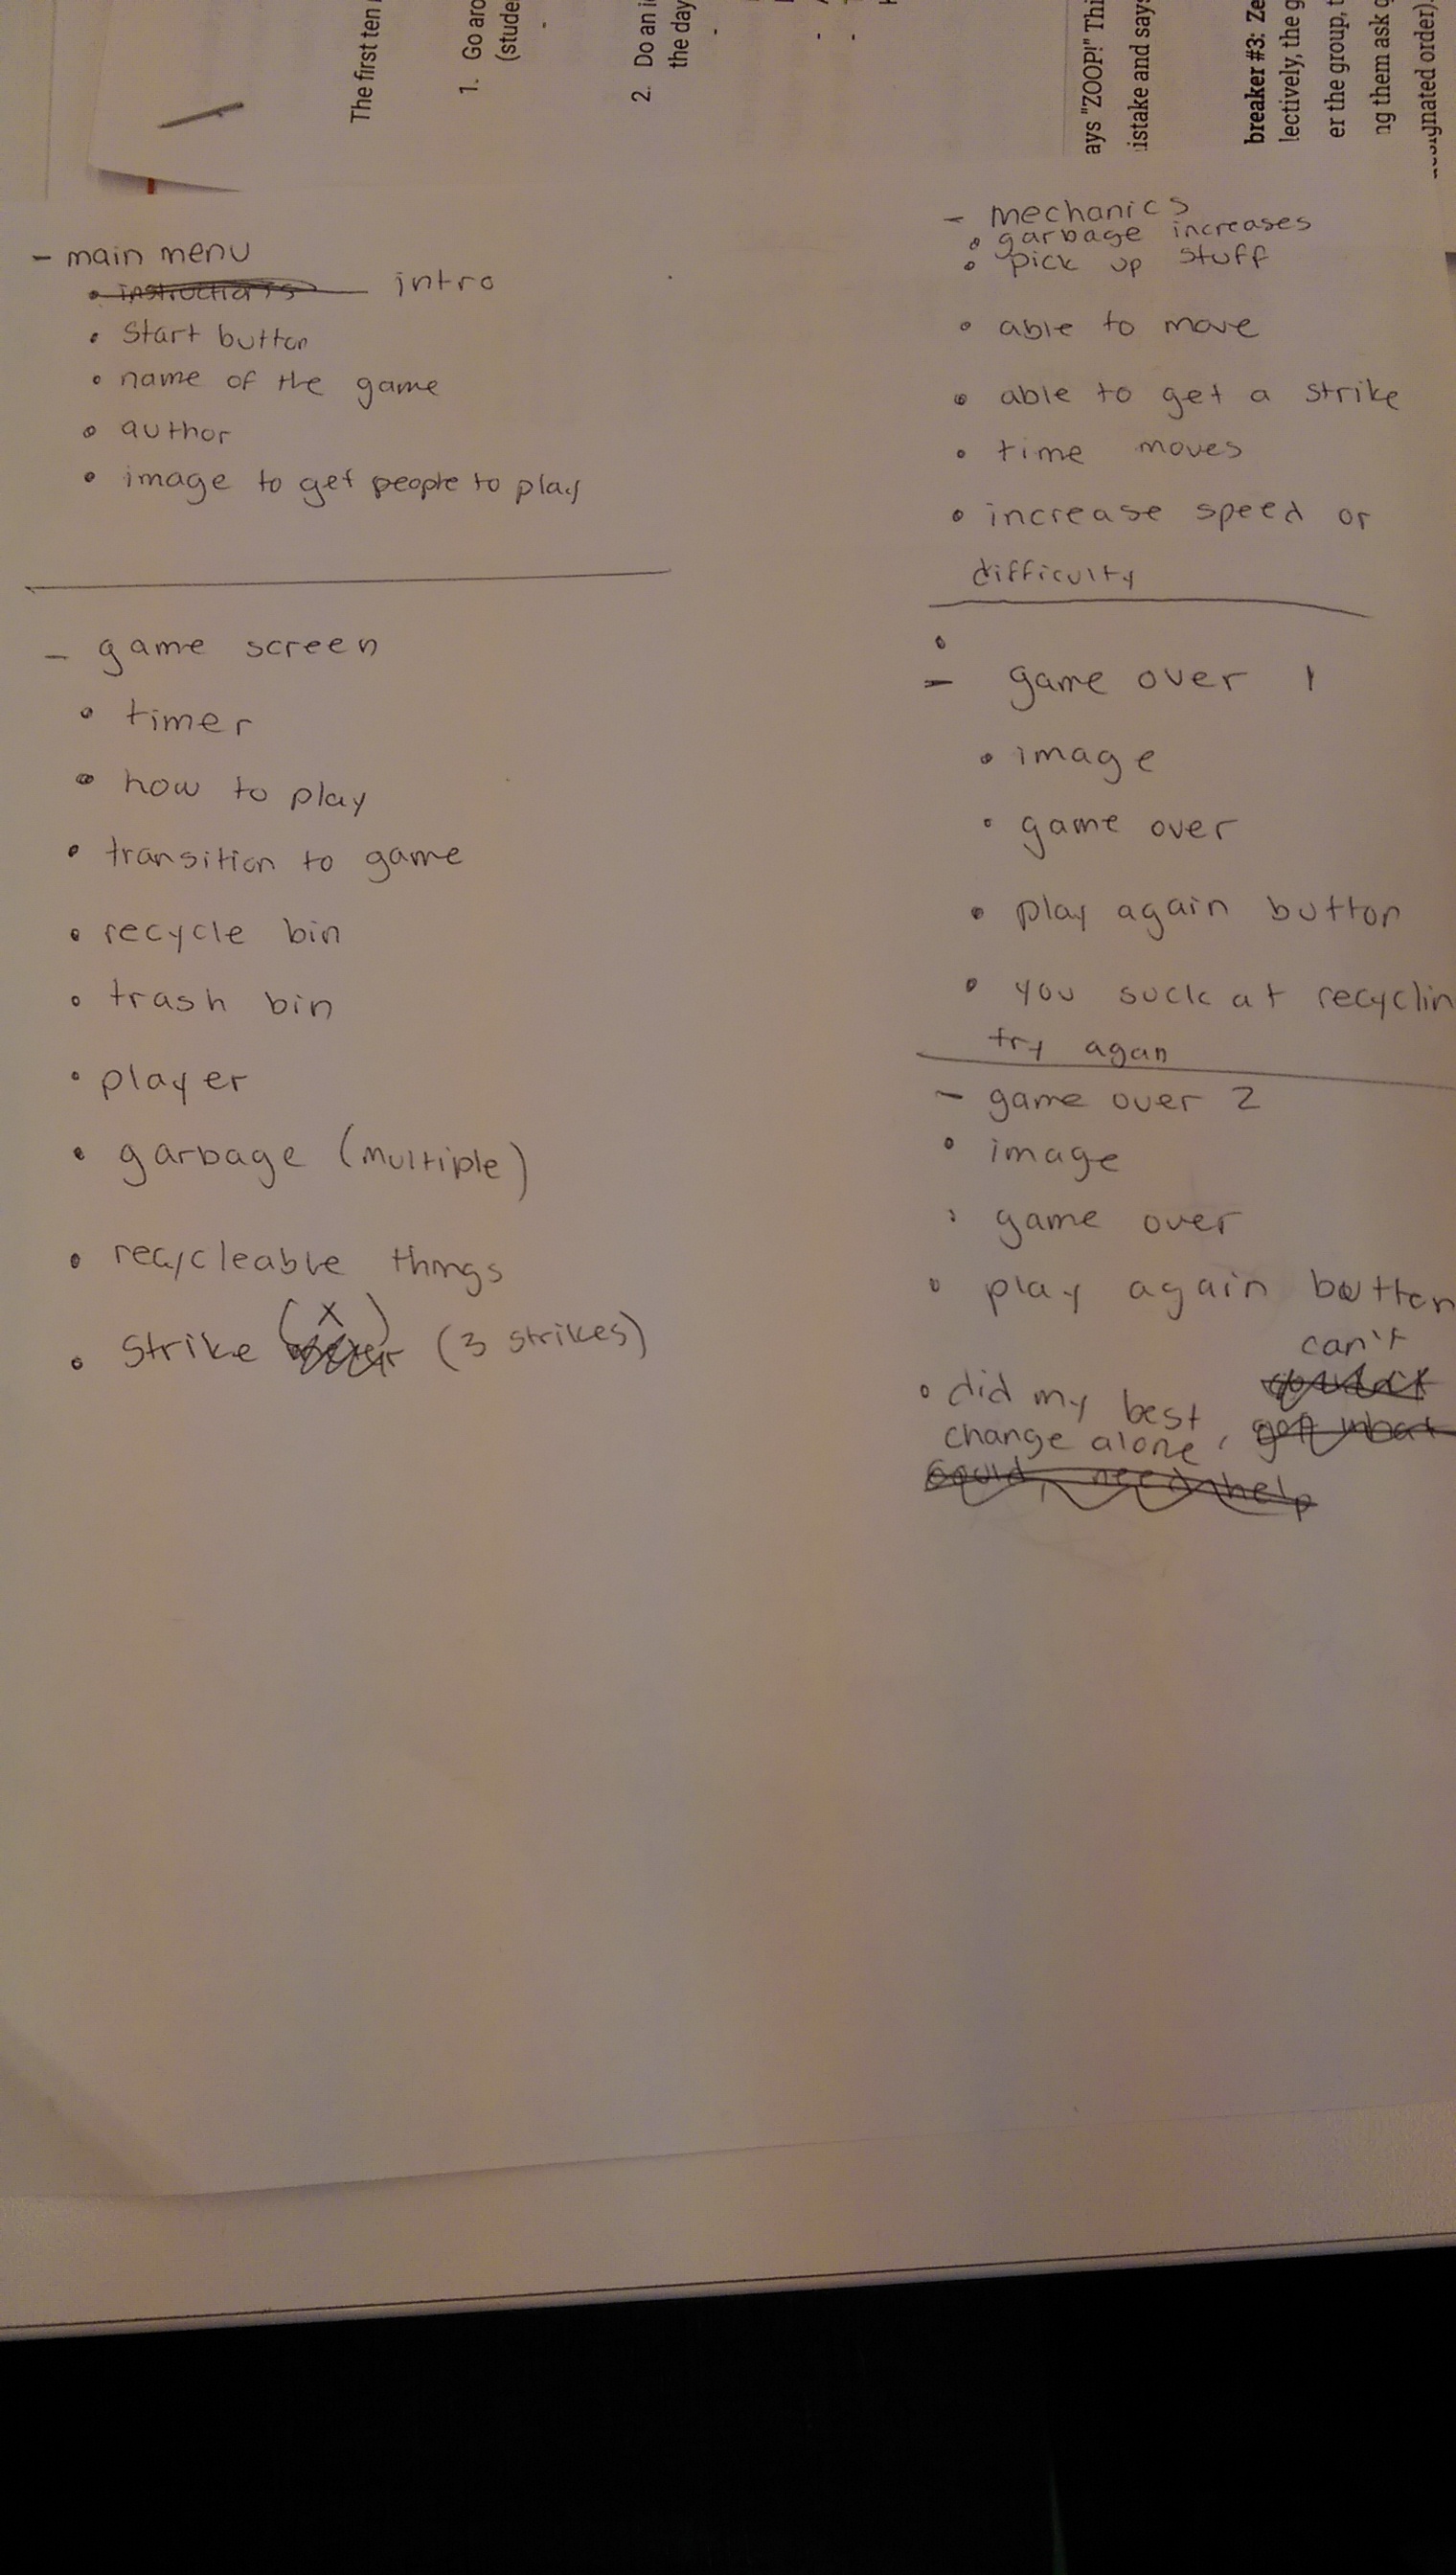 The first ten
1. Go aro
(stude
2. Do an i
the day
ays "ZOOP!" Thi
istake and says
breaker #3: Ze
lectively, the g
er the group, t
ng them ask q
gnated order).
- main menu
• instructions intro
• start button
• name of the game
• author
• image to get people to play
- game screen
• timer
• how to play
• transition to game
• recycle bin
• trash bin
• player
• garbage (multiple)
• recycleable things
• strike (X) (3 strikes)
- mechanics
• garbage increases
• pick up stuff
• able to move
• able to get a strike
• time moves
• increase speed or
difficulty
•
- game over 1
• image
• game over
• play again button
• you suck at recyclin
try agan
- game over 2
• image
• game over
• play again button
• did my best, can't
change alone,
need help